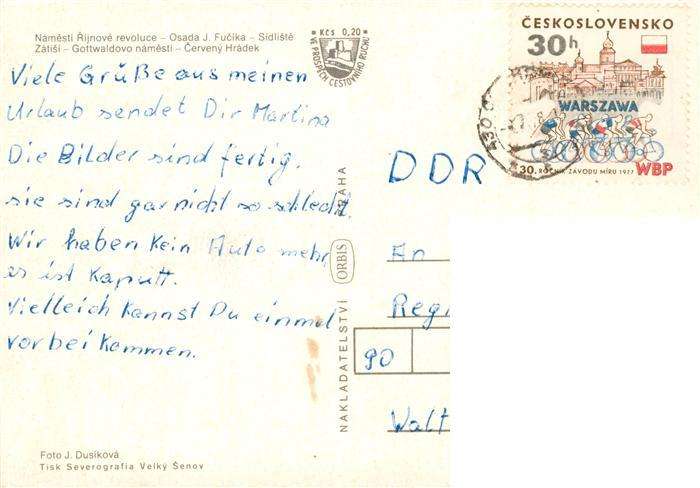 Náměstí Říjnové revoluce – Osada J. Fučíka – Sídliště
Zátiší – Gottwaldovo náměstí – Červený Hrádek
Viele Grüße aus meinen
Urlaub sendet Dir Martina
Die Bilder sind fertig,
sie sind gar nicht so schlecht.
Wir haben kein Auto mehr,
es ist kaputt.
Vielleich kannst Du einmal
vorbei kommen.
Foto J. Dusíková
Tisk Severografia Velký Šenov
* Kčs 0,20 *
VE PROSPĚCH CESTOVNÍHO RUCHU
NAKLADATELSTVÍ ORBIS PRAHA
ČESKOSLOVENSKO
30h
WARSZAWA
30. ROČNÍK ZÁVODU MÍRU 1977 WBP
DDR
An
Reg
90
Walt